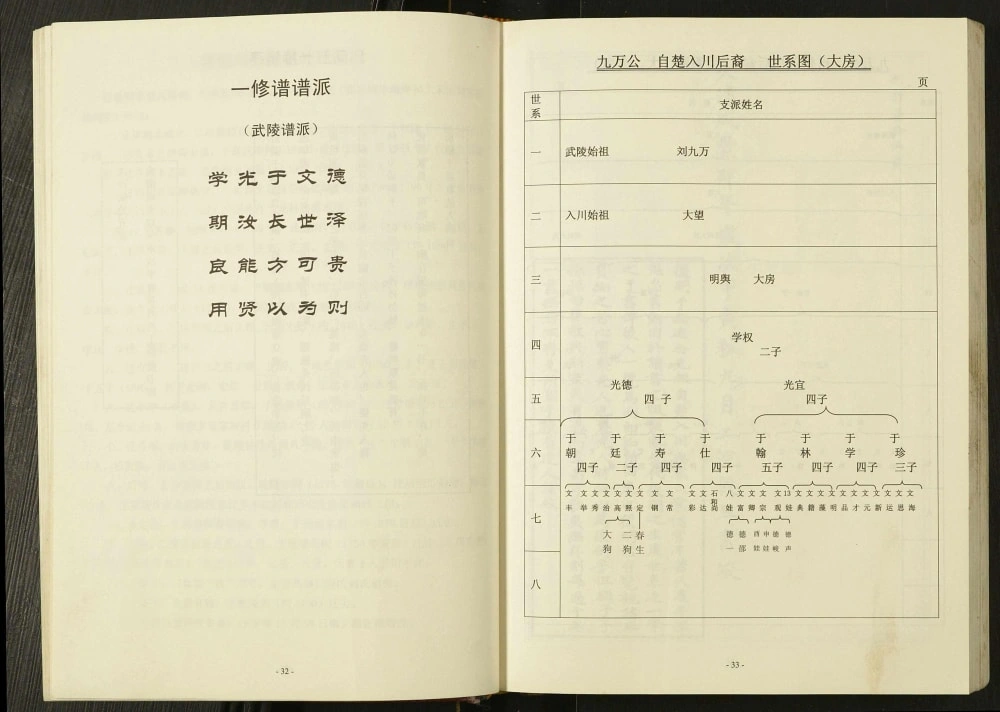 一修谱谱派
（武陵谱派）
学光于文德
期汝长世泽
良能方可贵
用贤以为则
- 32 -
九万公 自楚入川后裔 世系图（大房）
页
世系 支派姓名
一 武陵始祖 刘九万
二 入川始祖 大望
三 明舆 大房
四 学权
二子
五 光德 光宜
四子 四子
六 于朝 于廷 于寿 于仕 于翰 于林 于学 于珍
四子 二子 四子 四子 五子 四子 四子 三子
七 文丰 文举 文秀 文治 文亮 文照 文定 文钢 文常 文彩 文达 石和尚 八娃 文富 文卿 文宗 文观 13娃 文典 文籍 文藻 文明 文品 文才 文元 文新 文运 文恩 文海
八 大狗 二狗 春生 德一 德部 德声
- 33 -